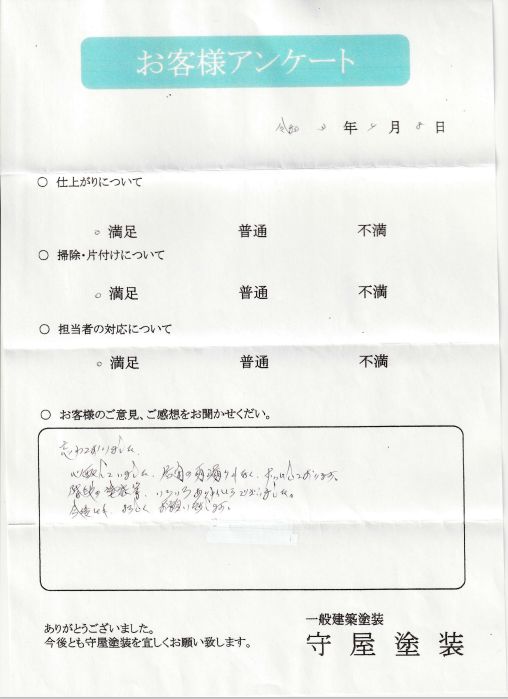 お客様アンケート
令和 3 年 4 月 8 日
○ 仕上がりについて
○ 満足 普通 不満
○ 掃除・片付けについて
○ 満足 普通 不満
○ 担当者の対応について
○ 満足 普通 不満
○ お客様のご意見、ご感想をお聞かせください。
心配していました、居間の雨漏りもなく、
階段の塗装等、いろいろありがとうございました。
今後とも、よろしくお願い致します。
ありがとうございました。
今後とも守屋塗装を宜しくお願い致します。
一般建築塗装
守屋塗装